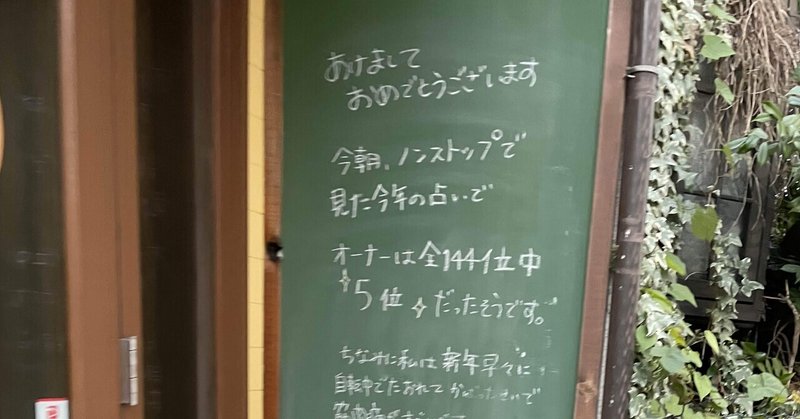 あけまして
おめでとうございます
今朝、ノンストップで
見た今年の占いで
オーナーは全144位中
5位だったそうです。
ちなみに私は新年早々に
自転車でたおれて